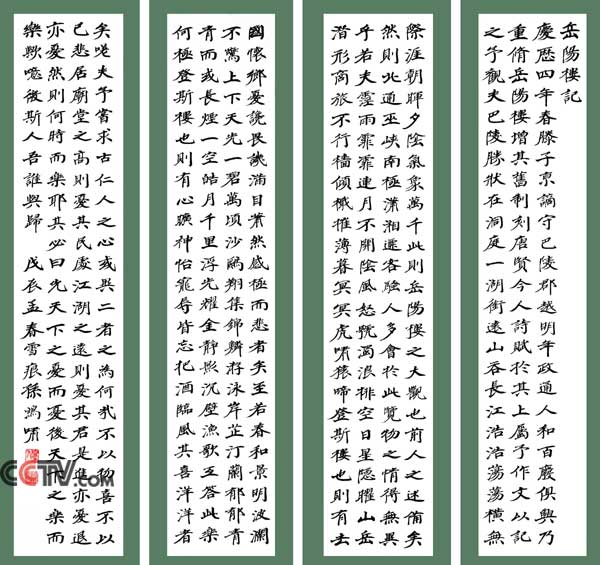 岳陽樓記
慶歷四年春滕子京謫守巴陵郡越明年政通人和百廢俱興乃
重脩岳陽樓增其舊制刻唐賢今人詩賦於其上屬予作文以記
之予觀夫巴陵勝狀在洞庭一湖銜遠山吞長江浩浩蕩蕩橫無
際涯朝暉夕陰氣象萬千此則岳陽樓之大觀也前人之述備矣
然則北通巫峽南極瀟湘遷客騷人多會於此覽物之情得無異
乎若夫霪雨霏霏連月不開陰風怒號濁浪排空日星隱曜山岳
潛形商旅不行檣傾檝摧薄暮冥冥虎嘯猿啼登斯樓也則有去
國懷鄉憂讒畏譏滿目蕭然感極而悲者矣至若春和景明波瀾
不驚上下天光一碧萬頃沙鷗翔集錦鱗游泳岸芷汀蘭郁郁青
青而或長煙一空皓月千里浮光耀金靜影沉璧漁歌互答此樂
何極登斯樓也則有心曠神怡寵辱皆忘把酒臨風其喜洋洋者
矣嗟夫予嘗求古仁人之心或異二者之為何哉不以物喜不以
己悲居廟堂之高則憂其民處江湖之遠則憂其君是進亦憂退
亦憂然則何時而樂耶其必曰先天下之憂而憂後天下之樂而
樂歟噫微斯人吾誰與歸 戊辰孟春雪痕孫鴻嘯
CCTV.com